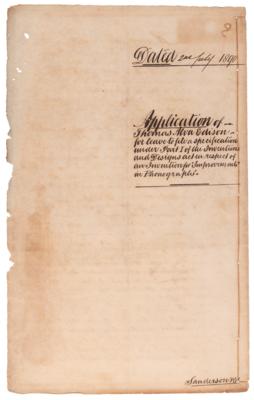 Dated 2nd July 1890
Application of
Thomas Alva Edison
for leave to file a specification
under Part I of the Inventions
and Designs act in respect of
an Invention for Improvements
in Phonographs.
Sanderson